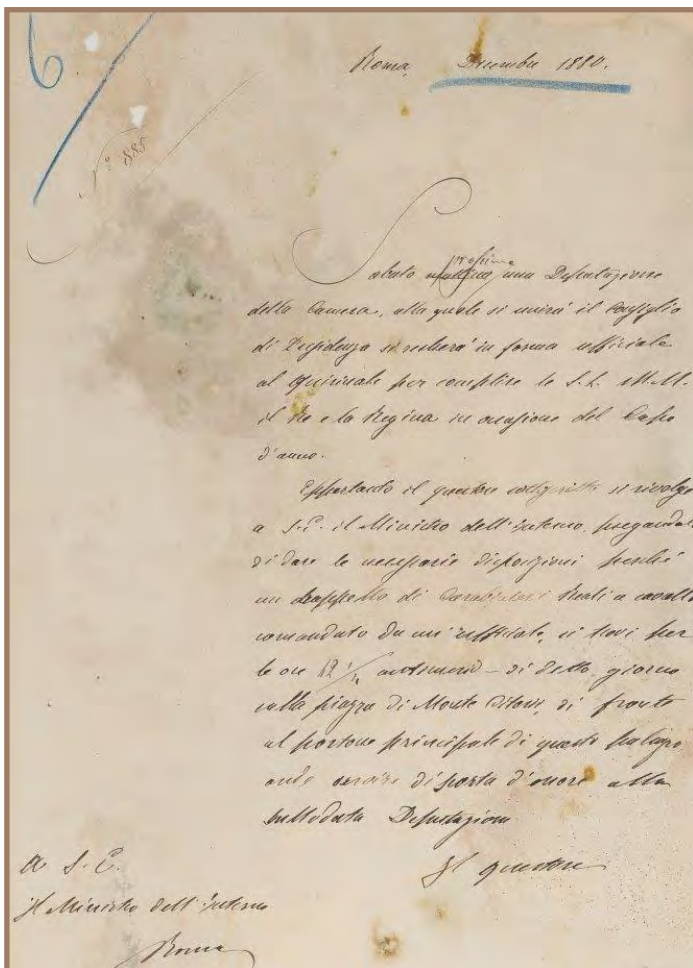 6
Roma, Dicembre 1880.
N.° 885
prossimo
Sabato una Deputazione
della Camera, alla quale si unirà il Consiglio
di Presidenza si recherà in forma ufficiale
al Quirinale per complire le L.L. M.M.
il Re e la Regina in occasione del Capo
d'anno.
Eppertanto il questore sottoscritto si rivolge
a S.E. il Ministro dell'Interno, pregandolo
di dare le necessarie disposizioni perché
un drappello di Carabinieri Reali a cavallo
comandato da un'uffiziale, si trovi per
le ore 12 1/2 di detto giorno
sulla piazza di Monte Citorio, di fronte
al portone principale di questo palazzo
onde servire di scorta d'onore alla
sullodata Deputazione
Il questore
A S.E.
Il Ministro dell'Interno
Roma